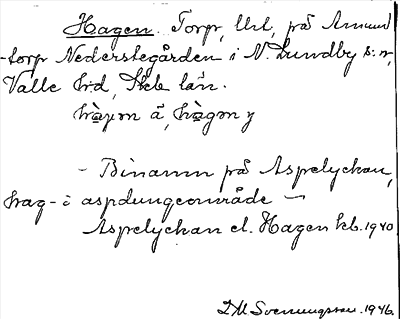 Hagen. Torp, Urt, på Amund
-torp Nederstegården i N. Lundby s:n,
Valle hrd, Skb. län.
hàgon ä, hàgon y
- Binamn på Aspelyckan,
hag- i aspdungeområde -
Aspelyckan el. Hagen kb. 1940
D M Svenungsson. 1946.